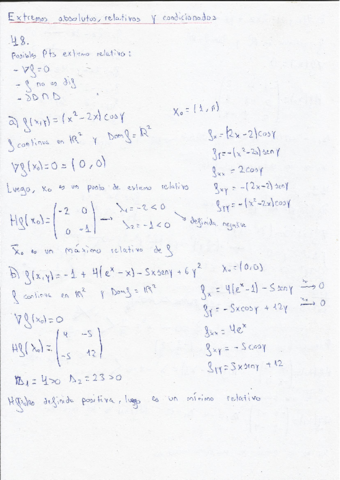 Extremos absolutos, relativos y condicionados
4.8.
Posibles Pts extremo relativo:
- ∇f=0
- f no es dif
- ∂D ∩ D
a) f(x,y) = (x²-2x) cos y x₀ = (1,0)
f continua en ℝ² y Domf = ℝ²
∇f(x₀) = 0 = (0,0)
fx = (2x-2) cos y
fy = -(x²-2x) sen y
fxx = 2 cos y
fxy = -(2x-2) sen y
fyy = -(x²-2x) cos y
Luego, x₀ es un punto de extremo relativo
Hf(x₀) = ( -2 0 → λ₀ = -2 < 0
0 -1 ) → λ₀ = -1 < 0 definida negativa
x̄₀ es un máximo relativo de f
b) f(x,y) = -1 + 4(eˣ-x) - 5x sen y + 6y² x₀ = (0,0)
f continua en ℝ² y Domf = ℝ²
fx = 4(eˣ-1) - 5 sen y → 0
fy = -5x cos y + 12y → 0
fxx = 4eˣ
fxy = -5 cos y
fyy = 5x sen y + 12
∇f(x₀) = 0
Hf(x₀) = ( 4 -5
-5 12 )
Δ₁ = 4 > 0 Δ₂ = 23 > 0
definida positiva, luego es un mínimo relativo